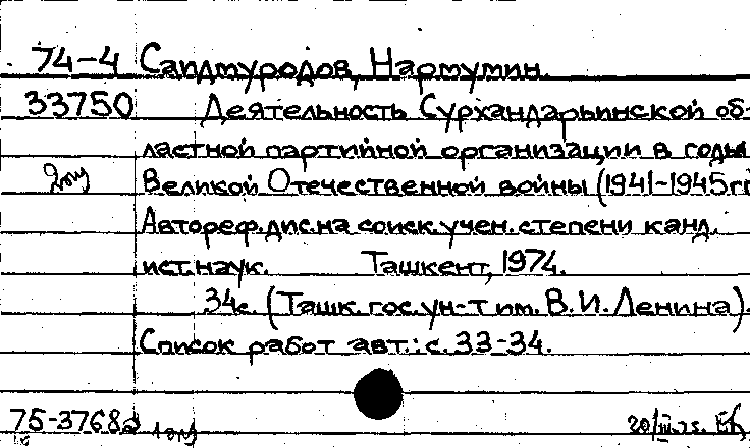 74-4 Саидмуродов, Нармумин.
33750 Деятельность Сурхандарьинской об-
ластной партийной организации в годы
Великой Отечественной войны (1941-1945гг
Автореф. дис. на соиск. учен. степени канд.
ист. наук. Ташкент, 1974.
34с. (Ташк. гос. ун-т им. В. И. Ленина).
Список работ авт.: с. 33-34.
75-3768 20/III-75.